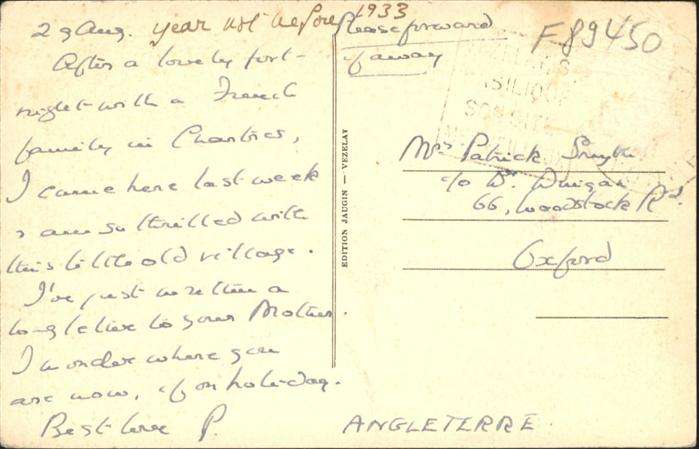 29 Aug. year not before 1933
After a lovely fort-
night with a French
family in Chartres,
I came here last week
& am so thrilled with
this little old village.
I've just written a
long letter to your Mother.
I wonder where you
are now, if on holiday.
Best love P.
EDITION JAUGIN — VEZELAY
Please forward
if away
F89450
SILIQUE
Mrs Patrick Smyth
c/o Dr. Duigan
66, Woodstock Rd.
Oxford
ANGLETERRE